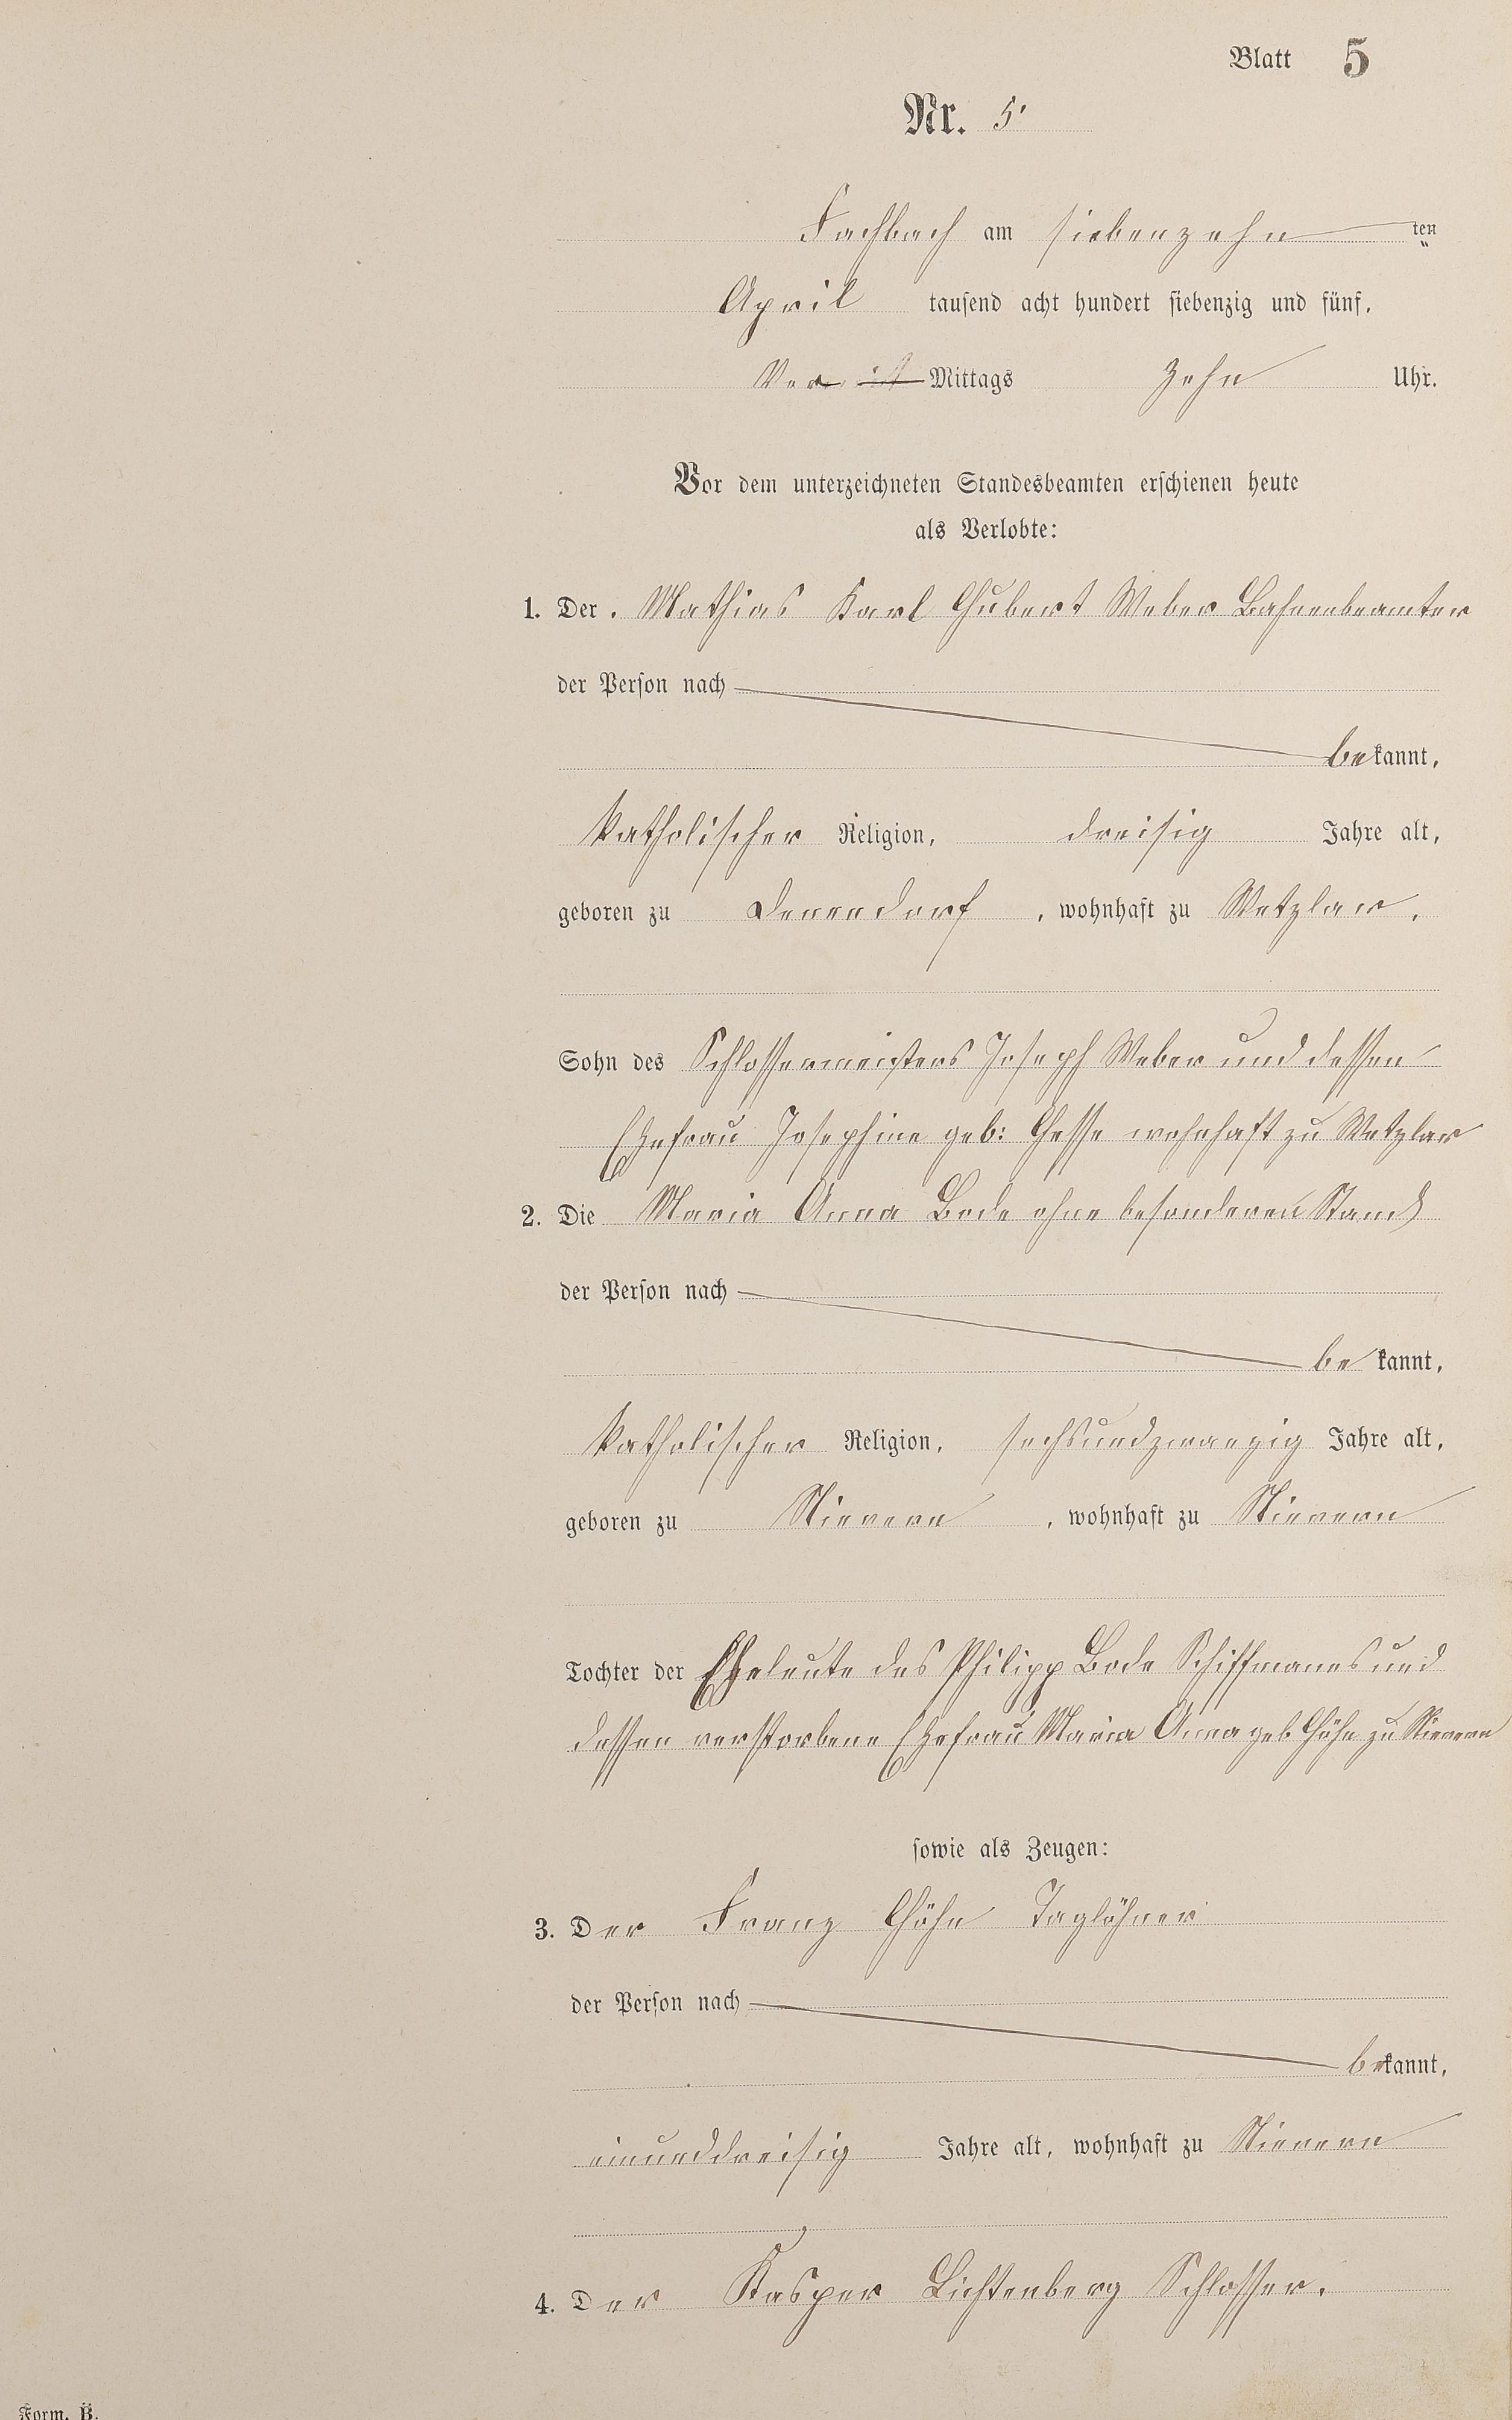 Blatt 5
Nr. 5
Fachbach am siebenzehn ten
April tausend acht hundert siebenzig und fünf,
Vor Mittags zehn Uhr.
Vor dem unterzeichneten Standesbeamten erschienen heute
als Verlobte:
1. Der Mathias Karl Hubert Weber Bahnenbeamter
der Person nach
bekannt,
katholischer Religion, dreisig Jahre alt,
geboren zu , wohnhaft zu Wetzlar,
Sohn des Schlossermeisters Joseph Weber und dessen
Ehefrau Josephine geb: Hesse wohnhaft zu Wetzlar
2. Die Maria Anna Bode ohne besonderen Stand
der Person nach
bekannt,
katholischer Religion, sechsundzwanzig Jahre alt,
geboren zu Nievern , wohnhaft zu Nievern
Tochter der Eheleute des Philipp Bode Schiffmannes und
dessen verstorbene Ehefrau Maria Anna geb Höhn zu Nievern
sowie als Zeugen:
3. Der Franz Höhn Taglöhner
der Person nach
bekannt,
einunddreisig Jahre alt, wohnhaft zu Nievern
4. Der Kasper Lichtenberg Schlosser.
Form. B.